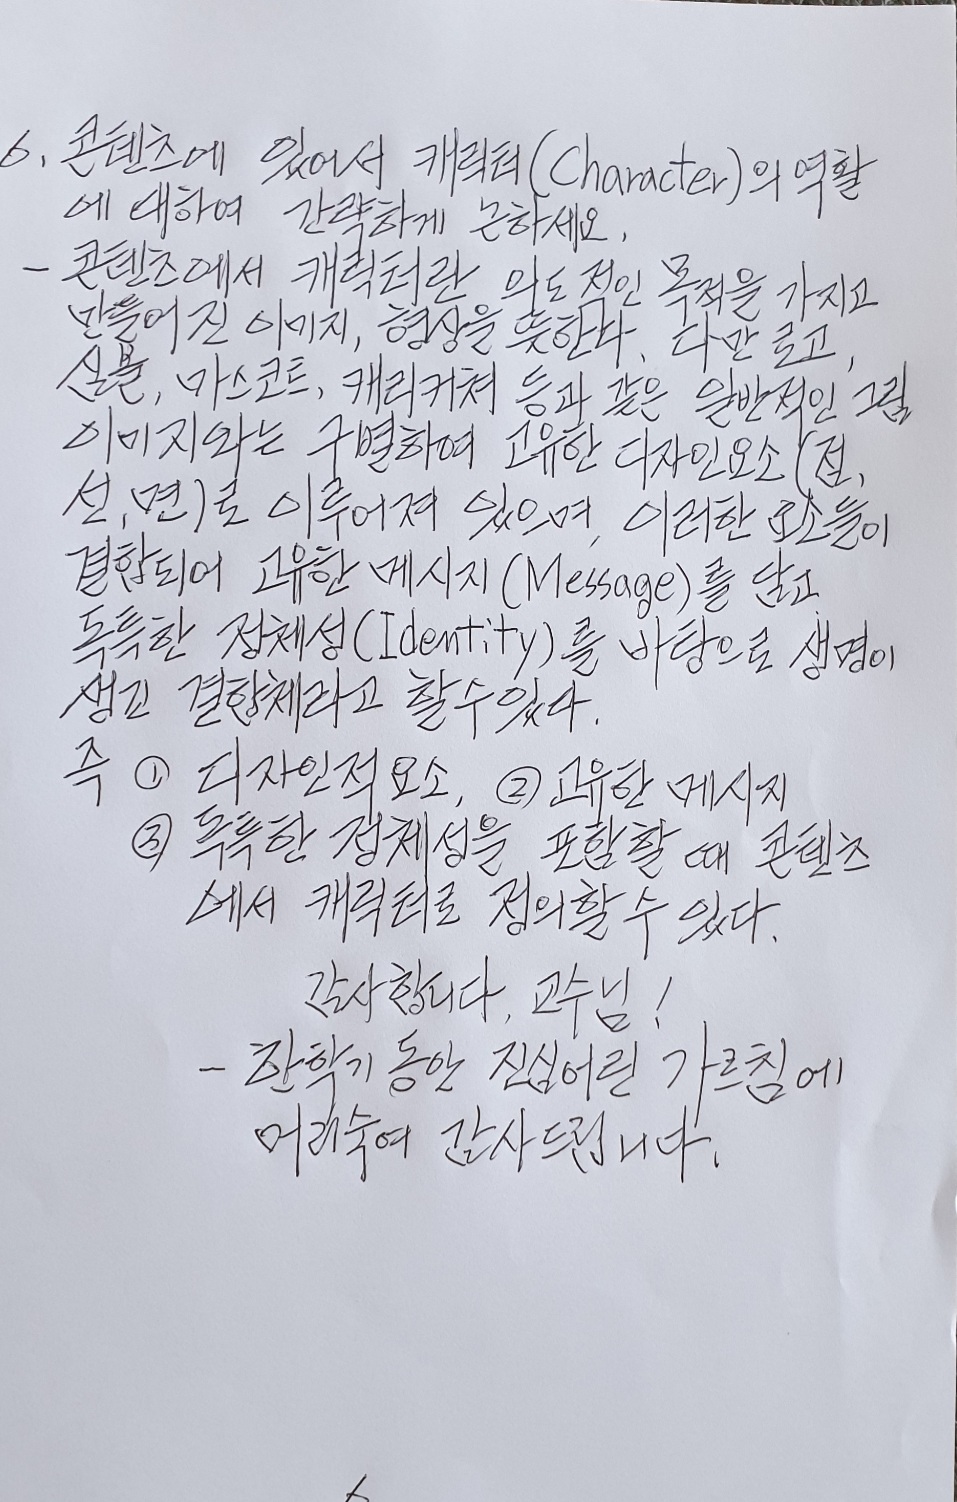 6. 콘텐츠에 있어서 캐릭터(Character)의 역할
에 대하여 간략하게 논하세요.
- 콘텐츠에서 캐릭터란 의도적인 목적을 가지고
만들어진 이미지, 형상을 뜻한다. 다만 로고,
심볼, 마스코트, 캐리커쳐 등과 같은 일반적인 그림,
이미지와는 구별하여 고유한 디자인요소(점,
선, 면)로 이루어져 있으며, 이러한 요소들이
결합되어 고유한 메시지(Message)를 담고
독특한 정체성(Identity)를 바탕으로 생명이
생긴 결합체라고 할 수 있다.
즉 ① 디자인적요소, ② 고유한 메시지
③ 독특한 정체성을 포함할 때 콘텐츠
에서 캐릭터로 정의할 수 있다.
감사합니다, 교수님!
- 한학기 동안 진심어린 가르침에
머리숙여 감사드립니다.
6